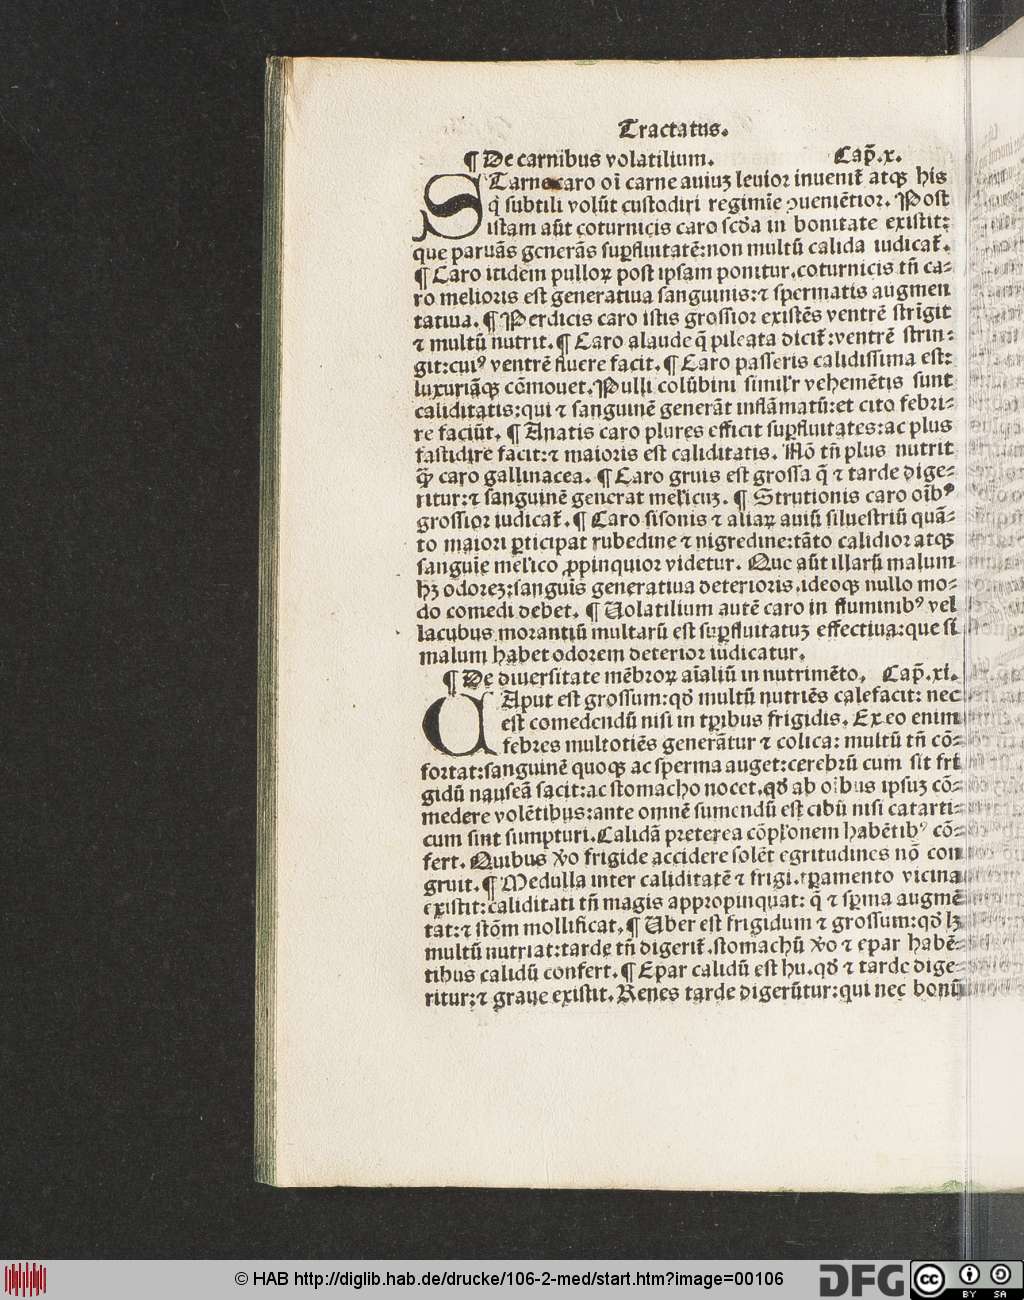 Tractatus.
¶ De carnibus volatilium. Cap̄.x.
STarne caro oī carne auiuꝫ leuior inuenit̄ atqꝫ his
q̇ subtili volūt custodiri regimīe ꝯueniētior. Post
istam aūt coturnicis caro scd̄a in bonitate existit:
que paruās generās suꝑfluitatē: non multū calida iudicat̄.
¶ Caro itidem pulloꝝ post ipsam ponitur. coturnicis tn̄ ca-
ro melioris est generatiua sanguinis: ⁊ spermatis augmen
tatiua. ¶ Perdicis caro istis grossior existēs ventrē strīgit
⁊ multū nutrit. ¶ Caro alaude q̄ pileata dicit̄: ventrē strin-
git: cuiꝰ ventrē fluere facit. ¶ Caro passeris calidissima est:
luxuriāqꝫ cōmouet. Pulli colūbini simil'r vehemētis sunt
caliditatis: qui ⁊ sanguinē generāt inflāmatū: et cito febri-
re faciūt. ¶ Anatis caro plures efficit suꝑfluitates: ac plus
fastidire facit: ⁊ maioris est caliditatis. Nō tn̄ plus nutrit
qꝫ̄ caro gallinacea. ¶ Caro gruis est grossa q̄ ⁊ tarde dige-
ritur: ⁊ sanguinē generat mel'icuꝫ. ¶ Strutionis caro oībꝰ
grossior iudicat̄. ¶ Caro sisonis ⁊ aliaꝝ auiū siluestriū quā-
to maiori ꝑticipat rubedine ⁊ nigredine: tāto calidior atqꝫ
sanguīe mel'ico ꝓpinquior videtur. Que aūt illarū malum
hꝫ odoreꝫ: sanguīs generatiua deterioris. ideoqꝫ nullo mo-
do comedi debet. ¶ Uolatilium autē caro in fluminibꝰ vel
lacubus morantiū multarū est suꝑfluitatuꝫ effectiua: que si
malum habet odorem deterior iudicatur.
¶ De diuersitate mēbroꝝ aīaliū in nutrimēto. Cap̄.xi.
CAput est grossum: qd̄ multū nutriēs calefacit: nec
est comedendū nisi in tꝑibus frigidis. Ex eo enim
febres multotiēs generātur ⁊ colica: multū tn̄ cō-
fortat: sanguinē quoqꝫ ac sperma auget: cerebrū cum sit fri
gidū nauseā facit: ac stomacho nocet. qd̄ ab oībus ipsuꝫ cō-
medere volētibus: ante omnē sumendū est cibū nisi catarti-
cum sint sumpturi. Calidā preterea cōpl'onem habētibꝰ cō-
fert. Quibus v̄o frigide accidere solēt egritudines nō con
gruit. ¶ Medulla inter caliditatē ⁊ frigi. tꝑamento vicina
existit: caliditati tn̄ magis appropinquat: q̄ ⁊ sꝑma augmē
tat: ⁊ stōm mollificat. ¶ Uber est frigidum ⁊ grossum: qd̄ lꝫ
multū nutriat: tarde tn̄ digerit̄. stomachū v̄o ⁊ epar habē-
tibus calidū confert. ¶ Epar calidū est hu. qd̄ ⁊ tarde dige-
ritur: ⁊ graue existit. Renes tarde digerūtur: qui nec bonū
© HAB http://diglib.hab.de/drucke/106-2-med/start.htm?image=00106
DFG
cc BY SA